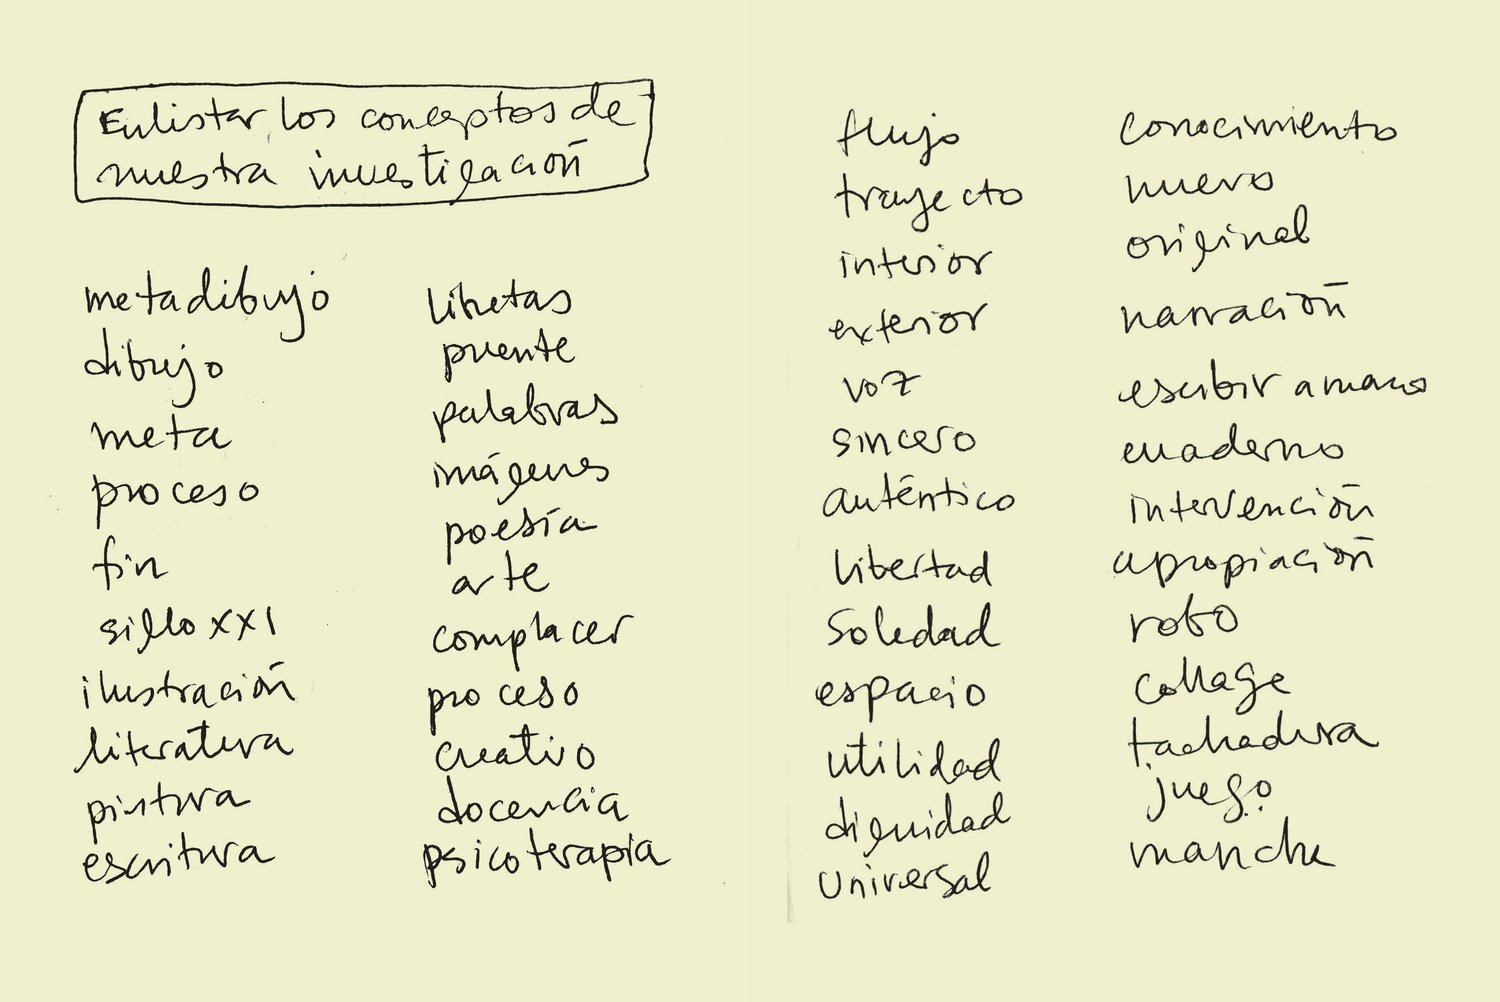 Enlistar los conceptos de
nuestra investigación
metadibujo
dibujo
meta
proceso
fin
siglo XXI
ilustración
literatura
pintura
escritura
libretas
puente
palabras
imágenes
poesía
arte
complacer
proceso
creativo
docencia
psicoterapia
flujo
trayecto
interior
exterior
voz
sincero
auténtico
libertad
soledad
espacio
utilidad
dignidad
universal
conocimiento
nuevo
original
narración
escribir a mano
cuaderno
intervención
apropiación
robo
collage
tachadura
juego
mancha